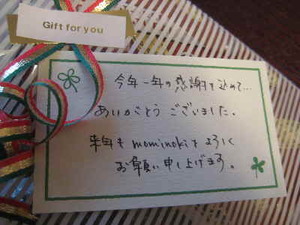 Gift for you
今年一年の感謝を込めて…
ありがとうございました。
来年もmominokiをよろしく
お願い申し上げます。